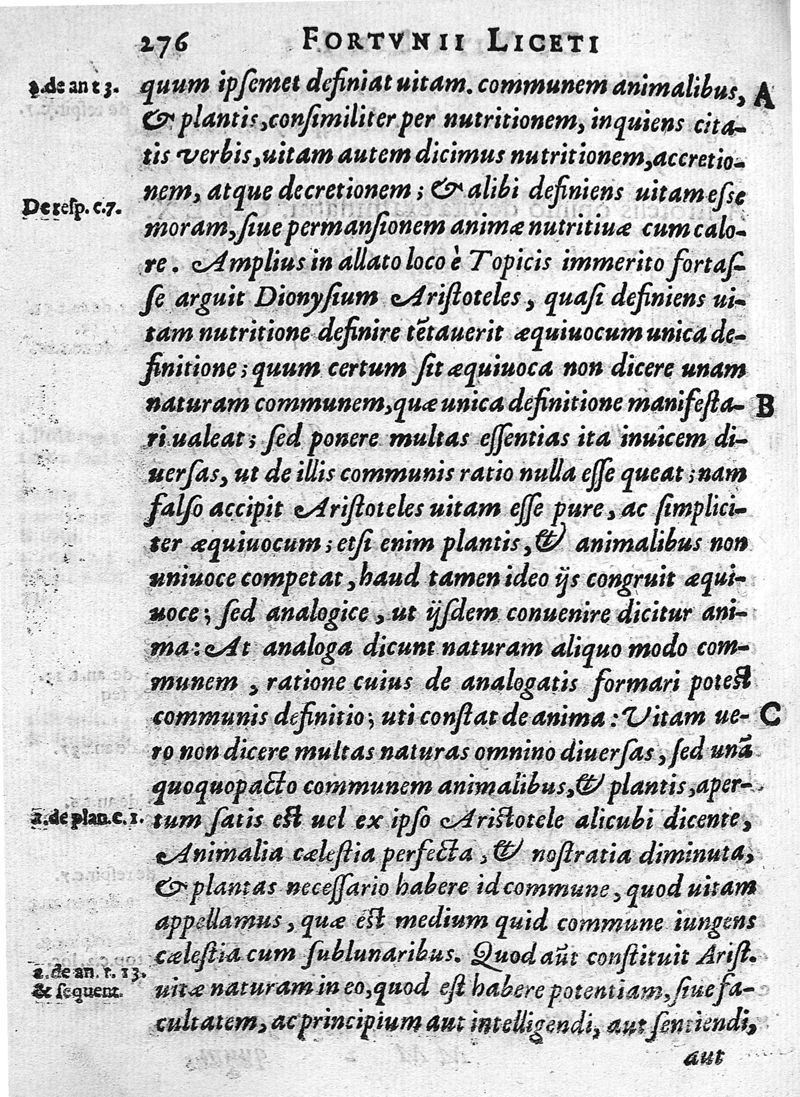 276 FORTVNII LICETI
2. de an t 3. quum ipsemet definiat uitam. communem animalibus, A
& plantis, consimiliter per nutritionem, inquiens cita-
tis verbis, uitam autem dicimus nutritionem, accretio-
nem, atque decretionem; & alibi definiens uitam esse
De resp. c. 7. moram, siue permansionem animæ nutritiuæ cum calo-
re. Amplius in allato loco è Topicis immerito fortas-
se arguit Dionysium Aristoteles, quasi definiens ui-
tam nutritione definire tẽtauerit æquiuocum unica de-
finitione; quum certum sit æquiuoca non dicere unam
naturam communem, quæ unica definitione manifesta- B
ri ualeat; sed ponere multas essentias ita inuicem di-
uersas, ut de illis communis ratio nulla esse queat; nam
falso accipit Aristoteles uitam esse pure, ac simplici-
ter æquiuocum; etsi enim plantis, & animalibus non
uniuoce competat, haud tamen ideo ijs congruit æqui-
uoce; sed analogice, ut ijsdem conuenire dicitur ani-
ma: At analoga dicunt naturam aliquo modo com-
munem, ratione cuius de analogatis formari potest
communis definitio; uti constat de anima: Vitam ue- C
ro non dicere multas naturas omnino diuersas, sed unã
quoquopacto communem animalibus, & plantis, aper-
2. de plan. c. 1. tum satis est uel ex ipso Aristotele alicubi dicente,
Animalia cælestia perfecta, & nostratia diminuta,
& plantas necessario habere id commune, quod uitam
appellamus, quæ est medium quid commune iungens
cælestia cum sublunaribus. Quod aũt constituit Arist.
2. de an. t. 13. & sequent. uitæ naturam in eo, quod est habere potentiam, siue fa-
cultatem, ac principium aut intelligendi, aut sentiendi,
aut